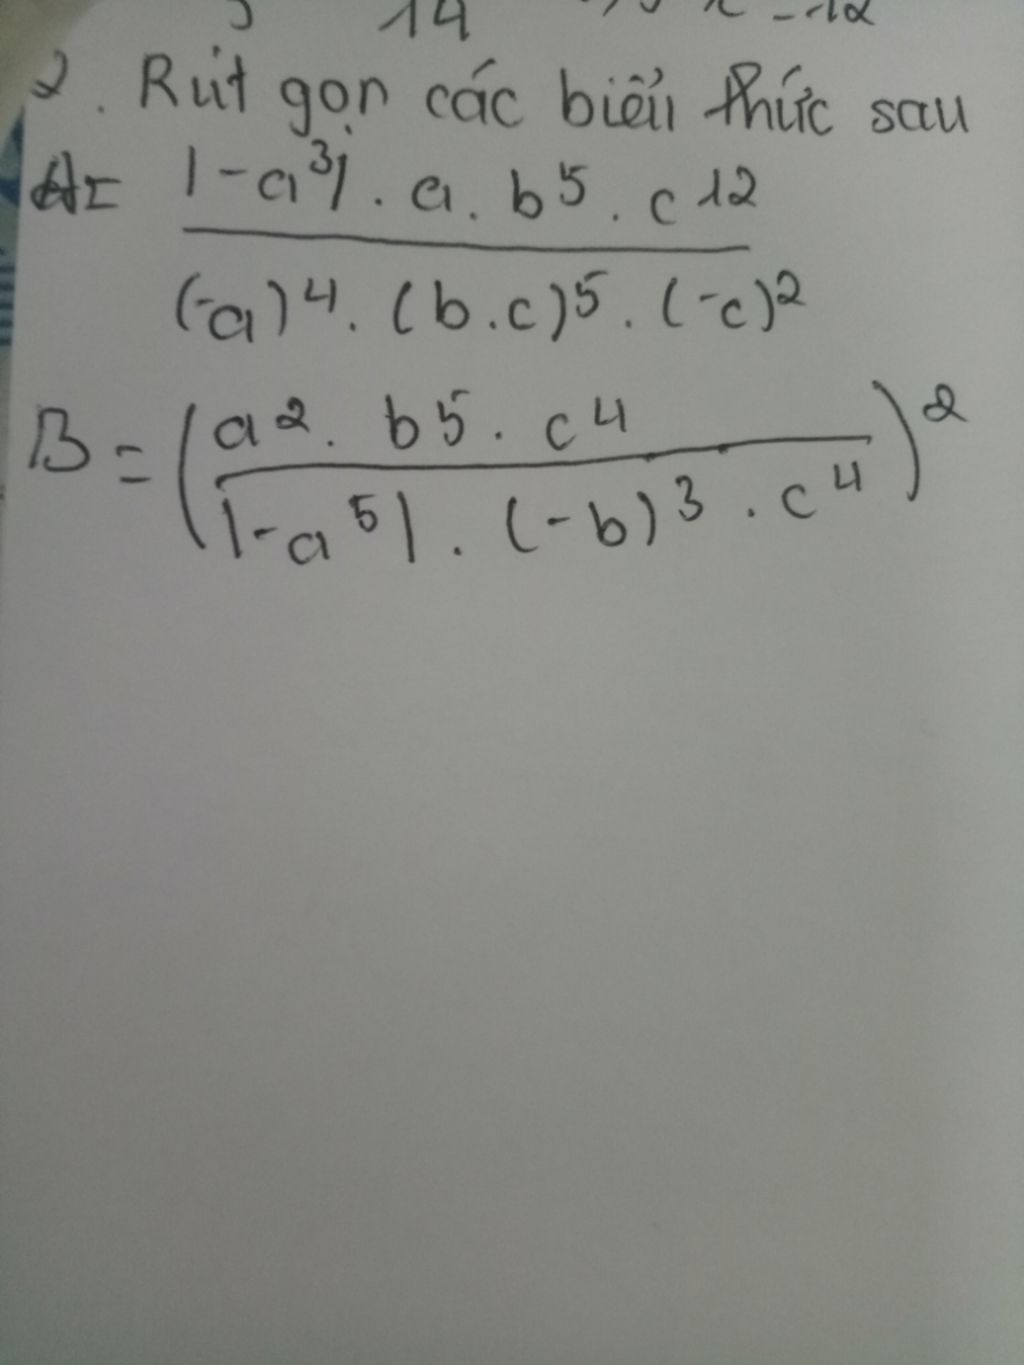 14
2. Rút gọn các biểu thức sau
A = |-a³| . a . b⁵ . c¹²
(-a)⁴ . (b.c)⁵ . (-c)²
B = (a² . b⁵ . c⁴)²
|-a⁵| . (-b)³ . c⁴